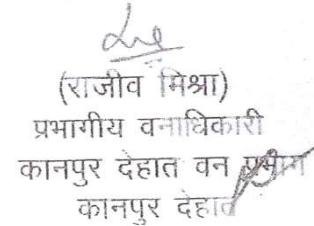 (राजीव मिश्रा)
प्रभागीय वनाधिकारी
कानपुर देहात वन प्रभाग
कानपुर देहात